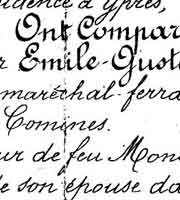 sidence à Ypres,
Ont Compar
r Emile-Gust
maréchal-ferra
Comines.
ur de feu Mons
e son épouse da